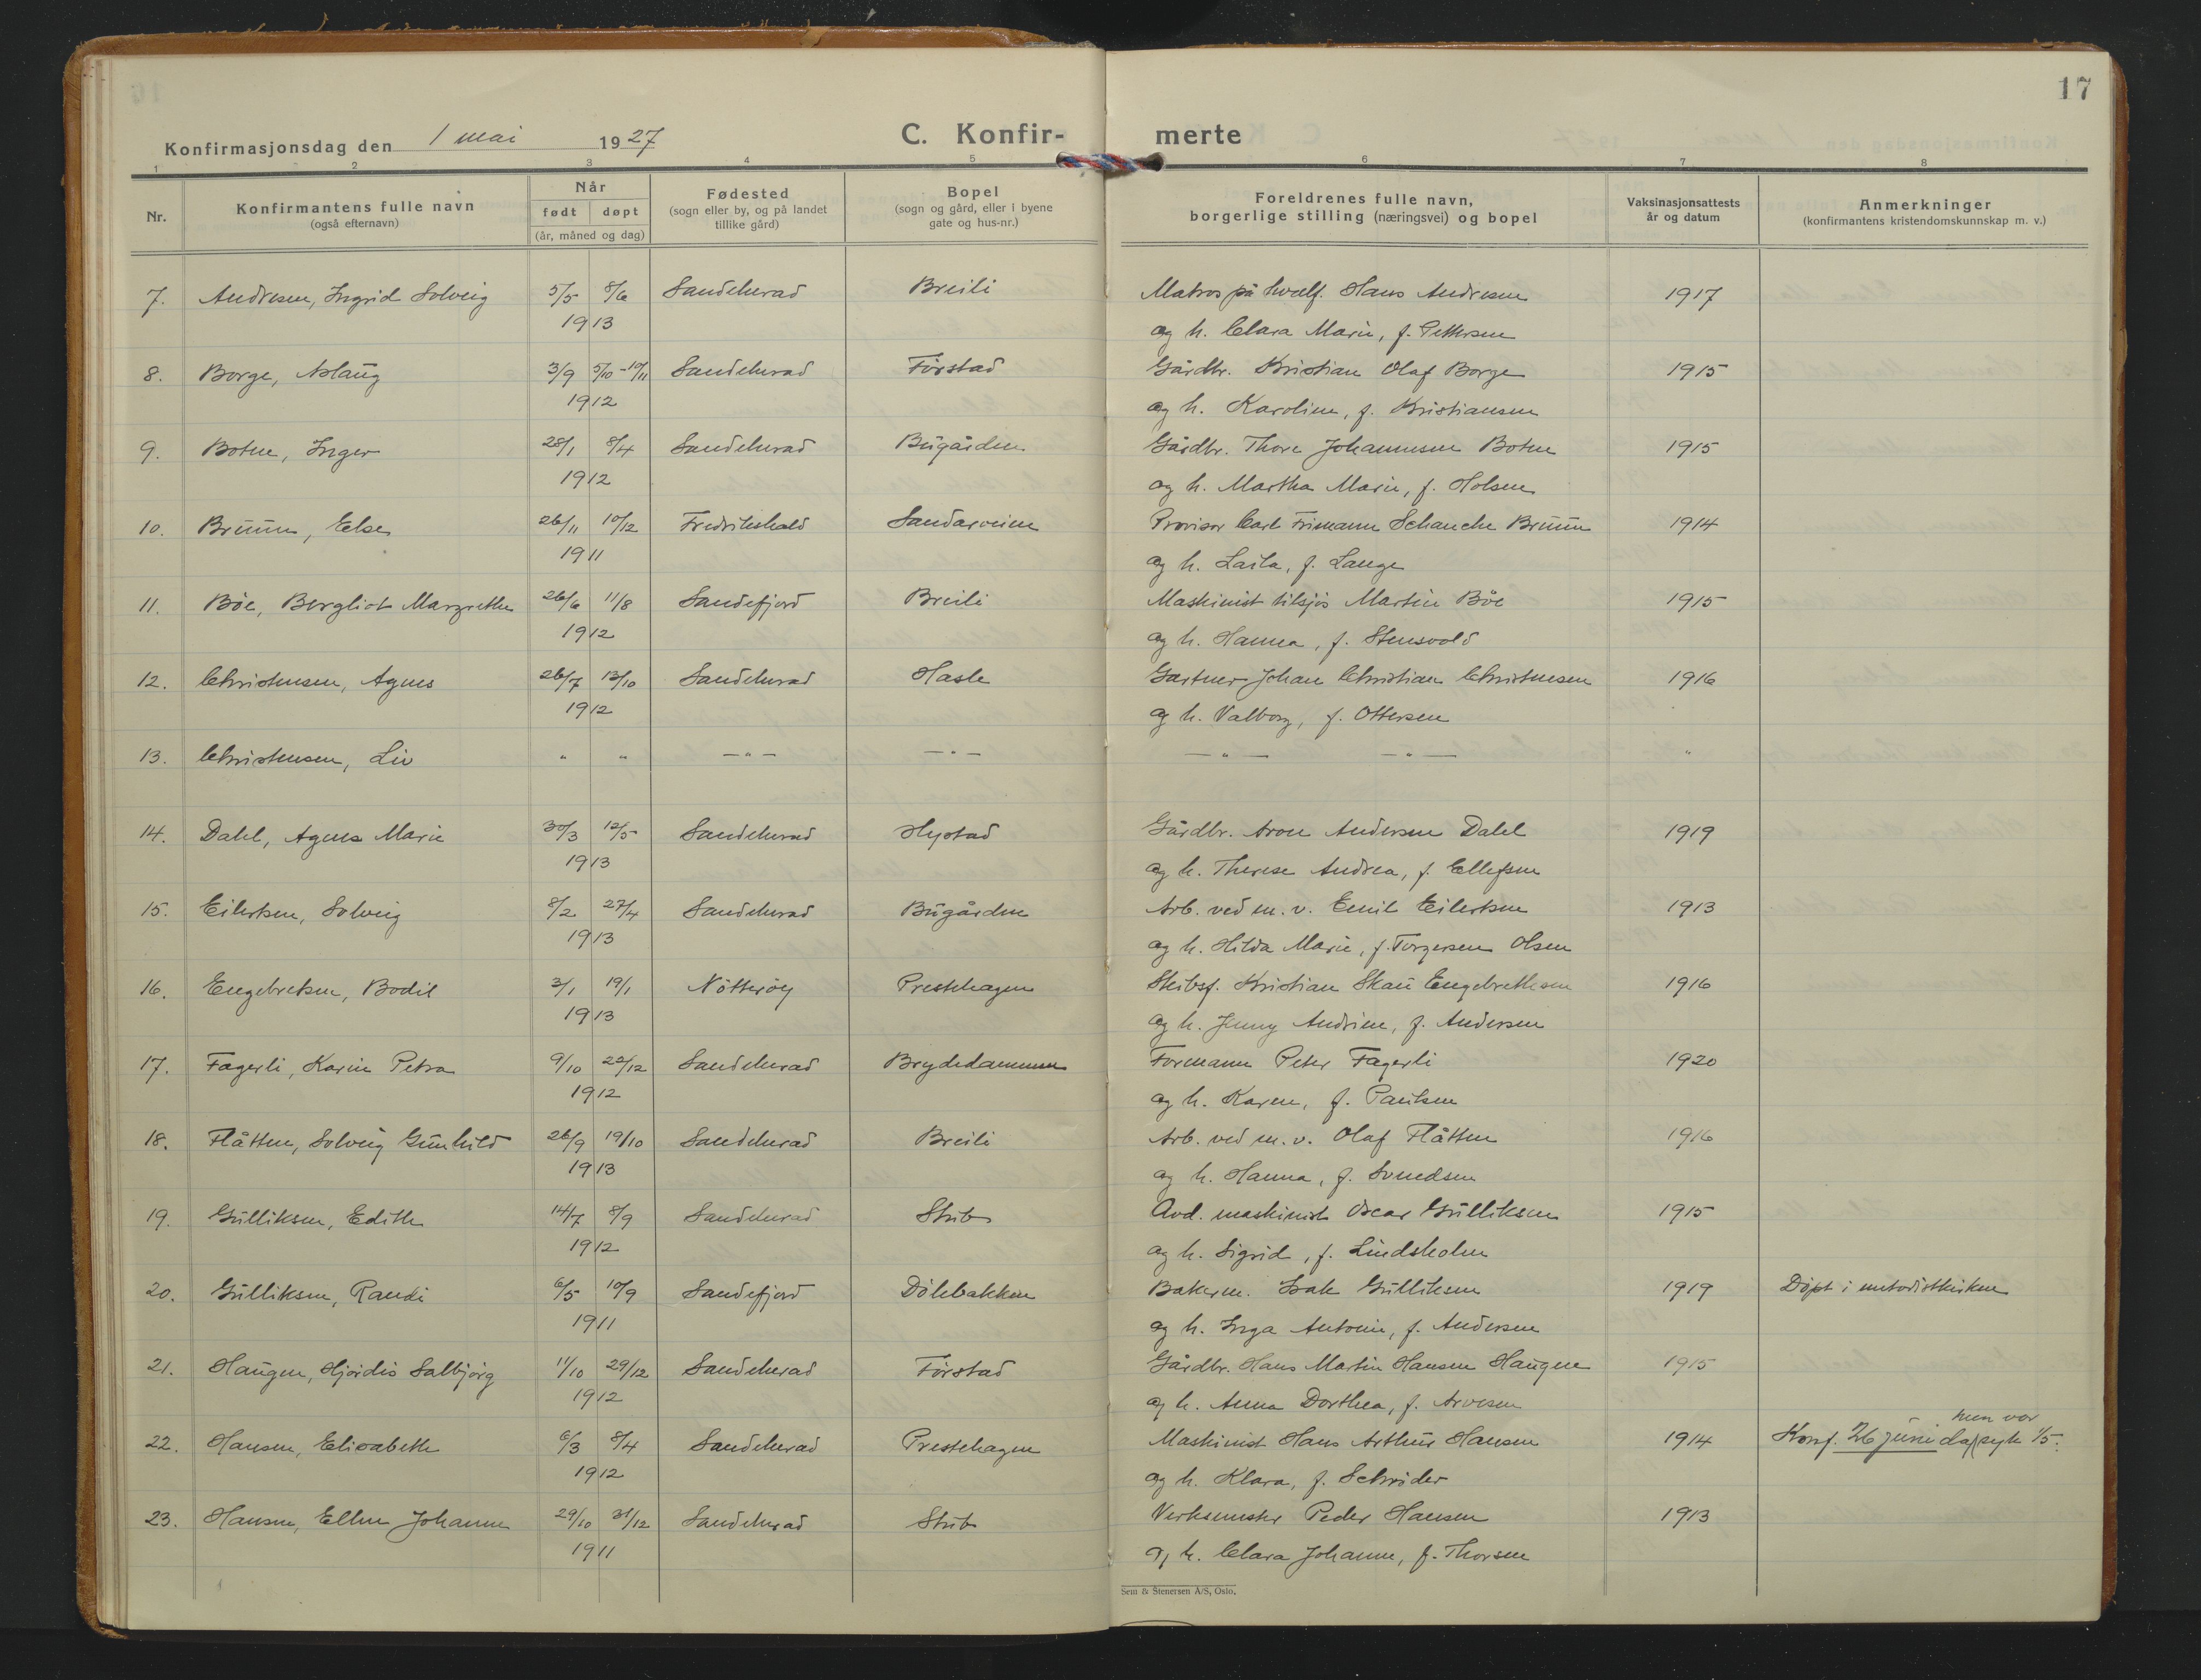 17
Konfirmasjonsdag den 1 mai 1927
C. Konfir- merte
1 2 3 4 5 6 7 8
Nr.
Konfirmantens fulle navn
(også efternavn)
Når
født døpt
(år, måned og dag)
Fødested
(sogn eller by, og på landet
tillike gård)
Bopel
(sogn og gård, eller i byene
gate og hus-nr.)
Foreldrenes fulle navn,
borgerlige stilling (næringsvei) og bopel
Vaksinasjonsattests
år og datum
Anmerkninger
(konfirmantens kristendomskunnskap m. v.)
7. Andresen, Ingrid Solveig 5/5 8/6 Sandeherad Breili Matros på hvalf. Hans Andresen 1917
1913 og h. Clara Marie, f. Pettersen
8. Borge, Aslaug 3/9 5/10-10/11 Sandeherad Förstad Gårdbr. Kristian Olaf Borge 1915
1912 og h. Karoline, f. Kristiansen
9. Botne, Inger 28/1 8/4 Sandeherad Bugården Gårdbr. Thore Johannesen Botne 1915
1912 og h. Martha Marie, f. Holsen
10. Bruun, Else 26/11 10/12 Fredrikshald Sandarveien Provisor Carl Frimann Schanche Bruun 1914
1911 og h. Laila, f. Lange
11. Böe, Bergliot Margrethe 26/6 11/8 Sandefjord Breili Maskinist tilsjös Martin Böe 1915
1912 og h. Hanna, f. Stensvold
12. Christensen, Agnes 26/7 13/10 Sandeherad Hasle Gartner Johan Christian Christensen 1916
1912 og h. Valborg, f. Ottersen
13. Christensen, Liv " " —"— —"— —"— —"— "
14. Dahl, Agnes Marie 30/3 12/5 Sandeherad Hystad Gårdbr. Aron Andersen Dahl 1919
1913 og h. Therese Andrea, f. Ellefsen
15. Eilertsen, Solveig 8/2 27/4 Sandeherad Bugården Arb. ved m. v. Emil Eilertsen 1913
1913 og h. Hilda Marie, f. Torgersen Olsen
16. Engebretsen, Bodil 3/1 19/1 Nötteröy Prestehagen Skibsf. Kristian Skau Engebrethsen 1916
1913 og h. Jenny Andrine, f. Andersen
17. Fagerli, Karin Petra 9/10 22/12 Sandeherad Brydedammen Formann Peter Fagerli 1920
1912 og h. Karen, f. Paulsen
18. Flåtten, Solveig Gunhild 26/9 19/10 Sandeherad Breili Arb. ved m. v. Olaf Flåtten 1916
1913 og h. Hanna, f. Svendsen
19. Gulliksen, Edith 14/7 8/9 Sandeherad Stub Avd. maskinist Oscar Gulliksen 1915
1912 og h. Sigrid, f. Lindsholm
20. Gulliksen, Randi 6/5 10/9 Sandefjord Dölebakken Bakerm. Isak Gulliksen 1919 Döpt i metodistkirken
1911 og h. Inga Antonie, f. Andersen
21. Haugen, Hjördis Salbjörg 11/10 29/12 Sandeherad Förstad Gårdbr. Hans Martin Hansen Haugen 1915
1912 og h. Anna Dorthea, f. Arvesen
22. Hansen, Elisabeth 6/3 8/4 Sandeherad Prestehagen Maskinist Hans Arthur Hansen 1914 Konf. 26 juni da hun var syk 1/5.
1912 og h. Klara, f. Schröder
23. Hansen, Ellen Johanne 29/10 31/12 Sandeherad Stub Verksmester Peder Hansen 1913
1911 og h. Clara Johanne, f. Thorsen
Sem & Stenersen A/S, Oslo.